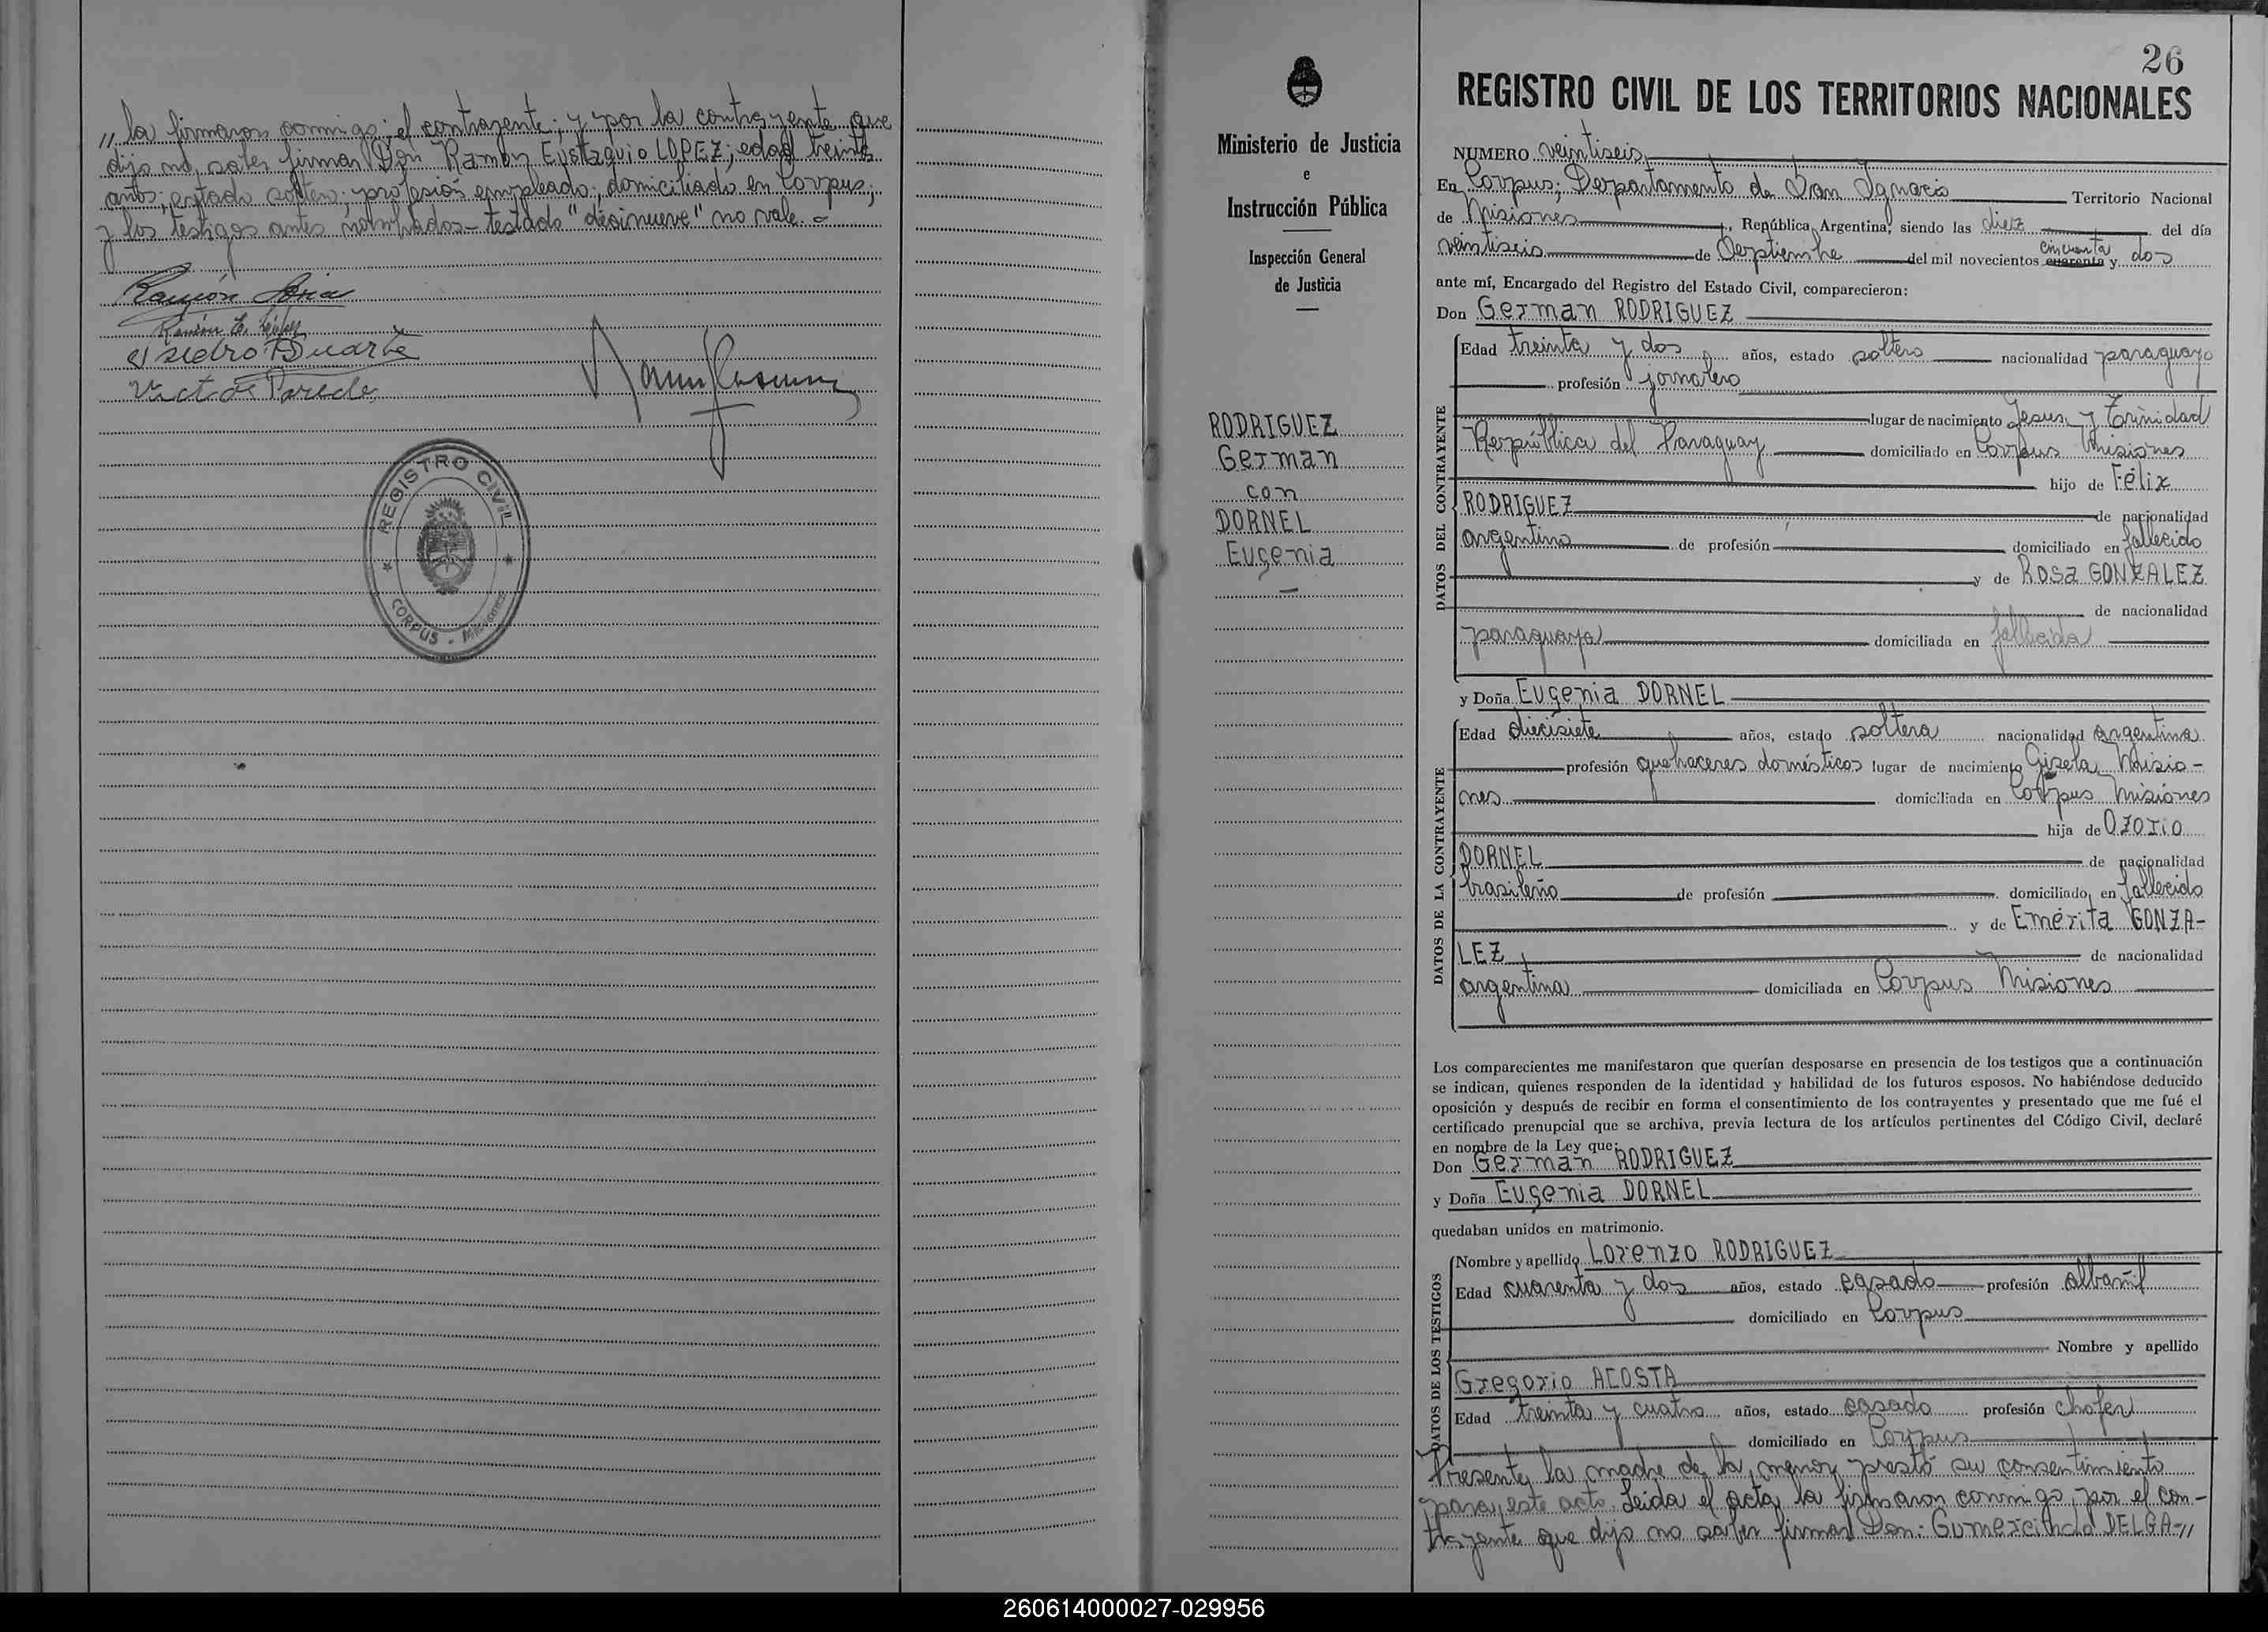 „ la firmaron conmigo; el contrayente; y por la contrayente que
dijo no saber firmar Don Ramón Eustaquio LOPEZ; edad treinta
años; estado soltero; profesión empleado; domiciliado en Corpus;
y los testigos antes nombrados - testado "diecinueve" no vale. -
Ramón Soria
Ramón E. López
Isidro Duarte
Victor Paredes
REGISTRO CIVIL
CORPUS - Misiones
Ministerio de Justicia
e
Instrucción Pública
Inspección General
de Justicia
RODRIGUEZ
German
con
DORNEL
Eugenia
26
REGISTRO CIVIL DE LOS TERRITORIOS NACIONALES
NUMERO veintiseis
En Corpus; Departamento de San Ignacio Territorio Nacional
de Misiones, República Argentina, siendo las diez del día
veintiseis de Septiembre del mil novecientos cuarenta cincuenta y dos
ante mí, Encargado del Registro del Estado Civil, comparecieron:
Don German RODRIGUEZ
DATOS DEL CONTRAYENTE
Edad treinta y dos años, estado soltero nacionalidad paraguayo
profesión jornalero
lugar de nacimiento Jesus y Trinidad
República del Paraguay domiciliado en Corpus Misiones
hijo de Félix
RODRIGUEZ de nacionalidad
argentino de profesión domiciliado en fallecido
y de Rosa GONZALEZ
de nacionalidad
paraguaya domiciliada en fallecida
y Doña Eugenia DORNEL
DATOS DE LA CONTRAYENTE
Edad diecisiete años, estado soltera nacionalidad argentina
profesión quehaceres domésticos lugar de nacimiento Gisela, Misio-
nes domiciliada en Corpus Misiones
hija de Ozorio
DORNEL de nacionalidad
brasileño de profesión domiciliado en fallecido
y de Emérita GONZA-
LEZ de nacionalidad
argentina domiciliada en Corpus Misiones
Los comparecientes me manifestaron que querían desposarse en presencia de los testigos que a continuación
se indican, quienes responden de la identidad y habilidad de los futuros esposos. No habiéndose deducido
oposición y después de recibir en forma el consentimiento de los contrayentes y presentado que me fué el
certificado prenupcial que se archiva, previa lectura de los artículos pertinentes del Código Civil, declaré
en nombre de la Ley que:
Don German RODRIGUEZ
y Doña Eugenia DORNEL
quedaban unidos en matrimonio.
DATOS DE LOS TESTIGOS
Nombre y apellido Lorenzo RODRIGUEZ
Edad cuarenta y dos años, estado casado profesión albañil
domiciliado en Corpus
Nombre y apellido
Gregorio ACOSTA
Edad treinta y cuatro años, estado casado profesión chofer
domiciliado en Corpus
Presente la madre de la menor prestó su consentimiento
para este acto. Leida el acta la firmaron conmigo, por el con-
trayente que dijo no saber firmar Don: Gumercindo DELGA-„
260614000027-029956